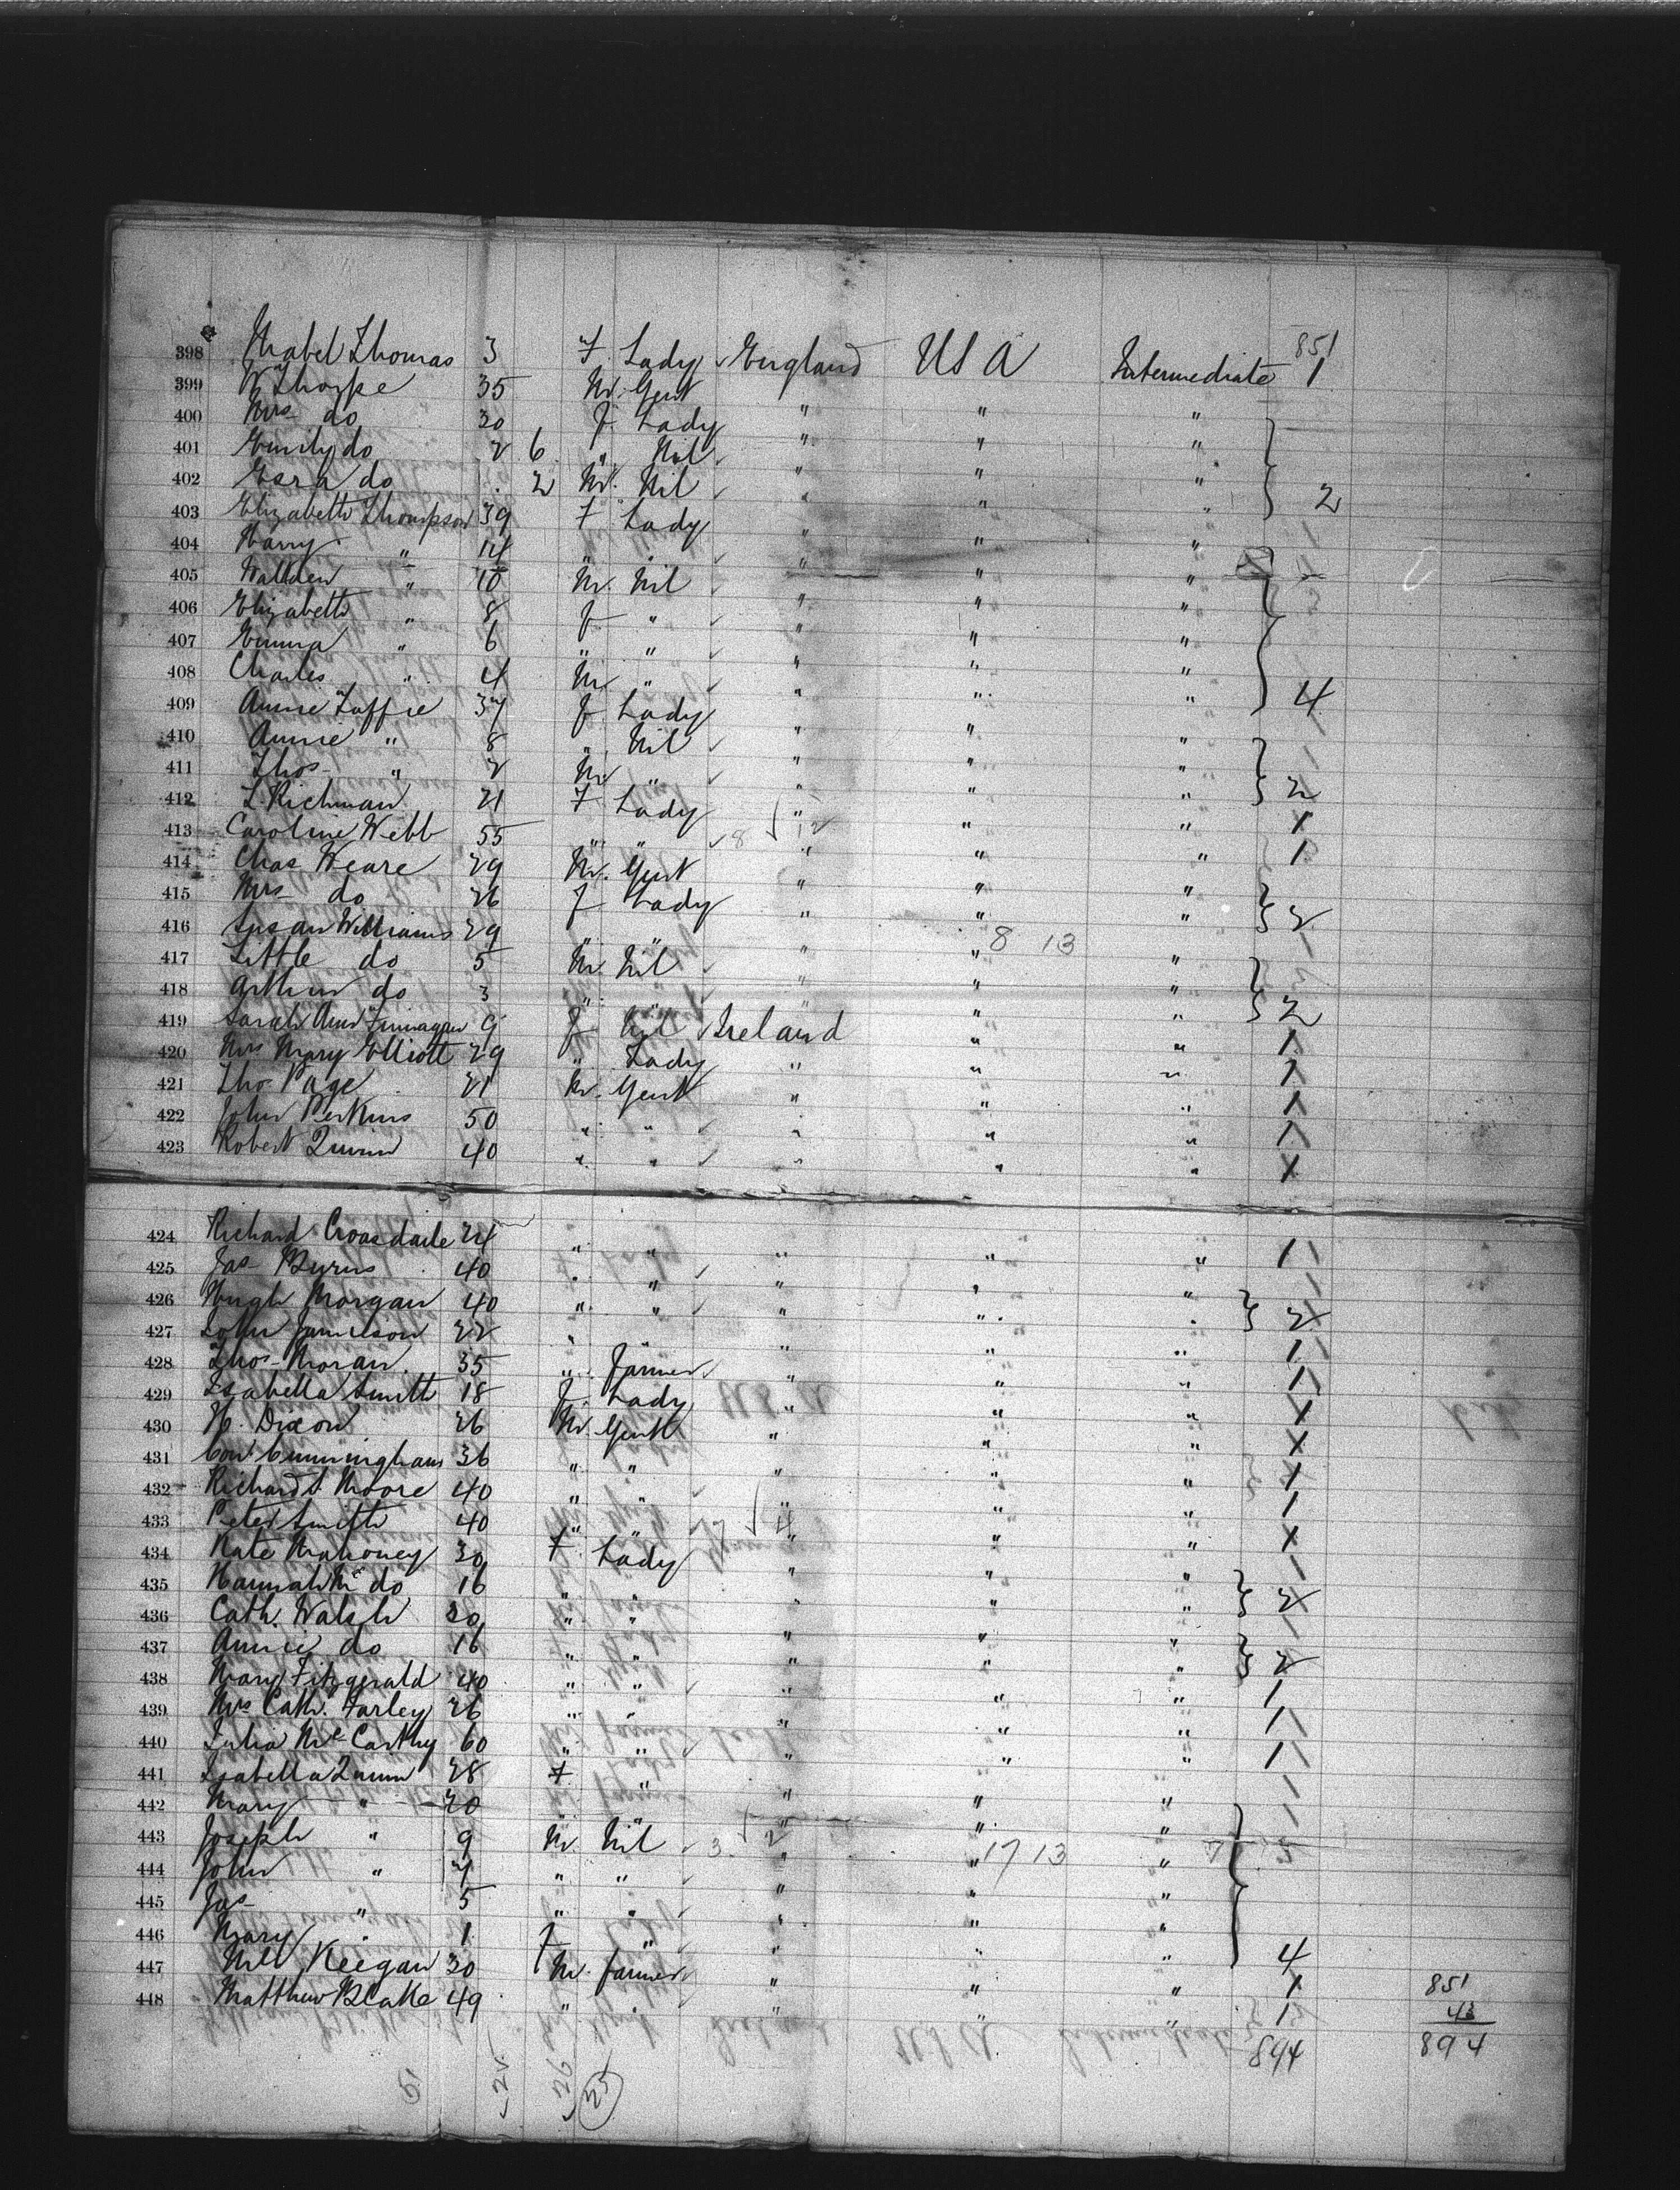 851
398 Mabel Thomas 3 F. Lady England USA Intermediate 1
399 Thorpe 35 M. Gent " " "
400 Mrs do 30 F. Lady " " "
401 Emily do 2 6 " Nil " " "
402 Esra do 2 M. Nil " " " 2
403 Elizabeth Thompson 39 F Lady " " "
404 Harry " 14 " " " " "
405 " 10 M. Nil " " "
406 Elizabeth " 8 F " " " "
407 Emma " 6 " " " " "
408 Charles " 4 M " " " " 4
409 Annie Taffie 37 F. Lady " " "
410 Annie " 8 " Nil " " "
411 Thos " 2 M " " " " 2
412 L. Richman 21 F. Lady " " " 1
413 Caroline Webb 55 " " " " " 1
414 Chas Weare 29 M. Gent " " "
415 Mrs do 26 F Lady " " " 2
416 Susan Williams 29 " " " " "
8 13
417 Little do 5 M. Nil " " "
418 Arthur do 3 " " " " " 2
419 Sarah Ann Finnagan 9 F Nil Ireland " " 1
420 Mrs Mary Elliott 29 " Lady " " " 1
421 Tho Page 21 M. Gent " " " 1
422 John Perkins 50 " " " " " 1
423 Robert Quinn 40 " " " " " 1
424 Richard Croasdaile 24 " " " " " 1
425 Jas Burns 40 " " " " "
426 Hugh Morgan 40 " " " " " 2
427 John Jamieson 22 " " " " 1
428 Thos Moran 35 " Farmer " " " 1
429 Isabella Smith 18 F. Lady " " " 1
430 H. Dixon 26 M. Gent " " " 1
431 Cunningham 36 " " " " " 1
432 Richard Moore 40 " " " " " 1
433 Peter Smith 40 " " " " " 1
434 Kate Mahoney 30 F Lady " " "
435 Hannah M do 16 " " " " " 2
436 Cath. Walsh 20 " " " " "
437 Annie do 16 " " " " " 2
438 Mary Fitzgerald 40 " " " " " 1
439 Mrs Cath. Farley 26 " " " " " 1
440 Julia McCarthy 60 " " " " " 1
441 Isabella Quinn 28 F " " " "
442 Mary " 20 " " " " "
443 Joseph " 9 M. Nil " " "
17 13
444 John " 7 " " " " "
445 Jas " 5 " " " " "
446 Mary " 1 F " " " " 4
447 Keegan 30 M. Farmer " " " 1
448 Matthew Blake 49 " " " " " 1
894
851
43
894
25